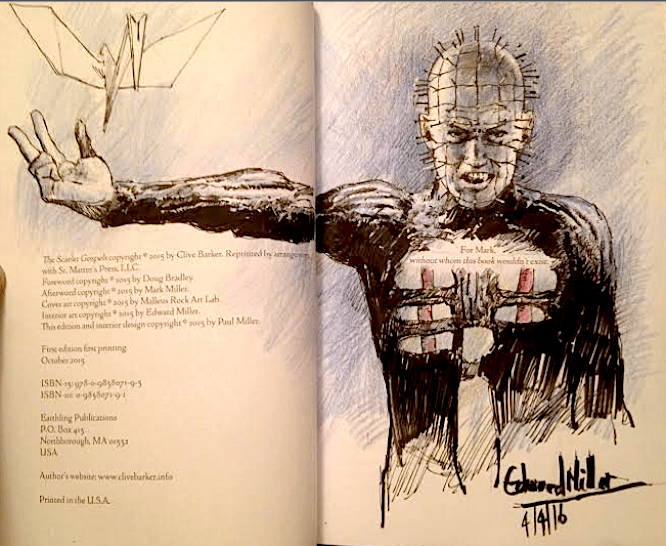 The Scarlet Gospels copyright © 2015 by Clive Barker. Reprinted by arrangement
with St. Martin's Press, LLC.
Foreword copyright © 2015 by Doug Bradley.
Afterword copyright © 2015 by Mark Miller.
Cover art copyright © 2015 by Malleus Rock Art Lab.
Interior art copyright © 2015 by Edward Miller.
This edition and interior design copyright © 2015 by Paul Miller.
First edition first printing
October 2015
ISBN-13: 978-0-9858071-9-3
ISBN-10: 0-9858071-9-1
Earthling Publications
P.O. Box 413
Northborough, MA 01532
USA
Author's website: www.clivebarker.info
Printed in the U.S.A.
For Mark,
without whom this book wouldn't exist.
Edward Miller
4/4/16